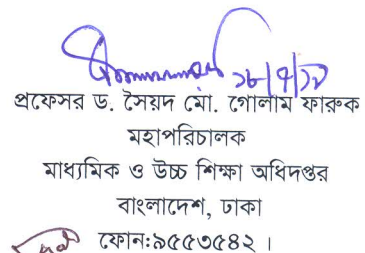 প্রফেসর ড. সৈয়দ মো. গোলাম ফারুক
মহাপরিচালক
মাধ্যমিক ও উচ্চ শিক্ষা অধিদপ্তর
বাংলাদেশ, ঢাকা
ফোন:৯৫৫৩৫৪২ ।